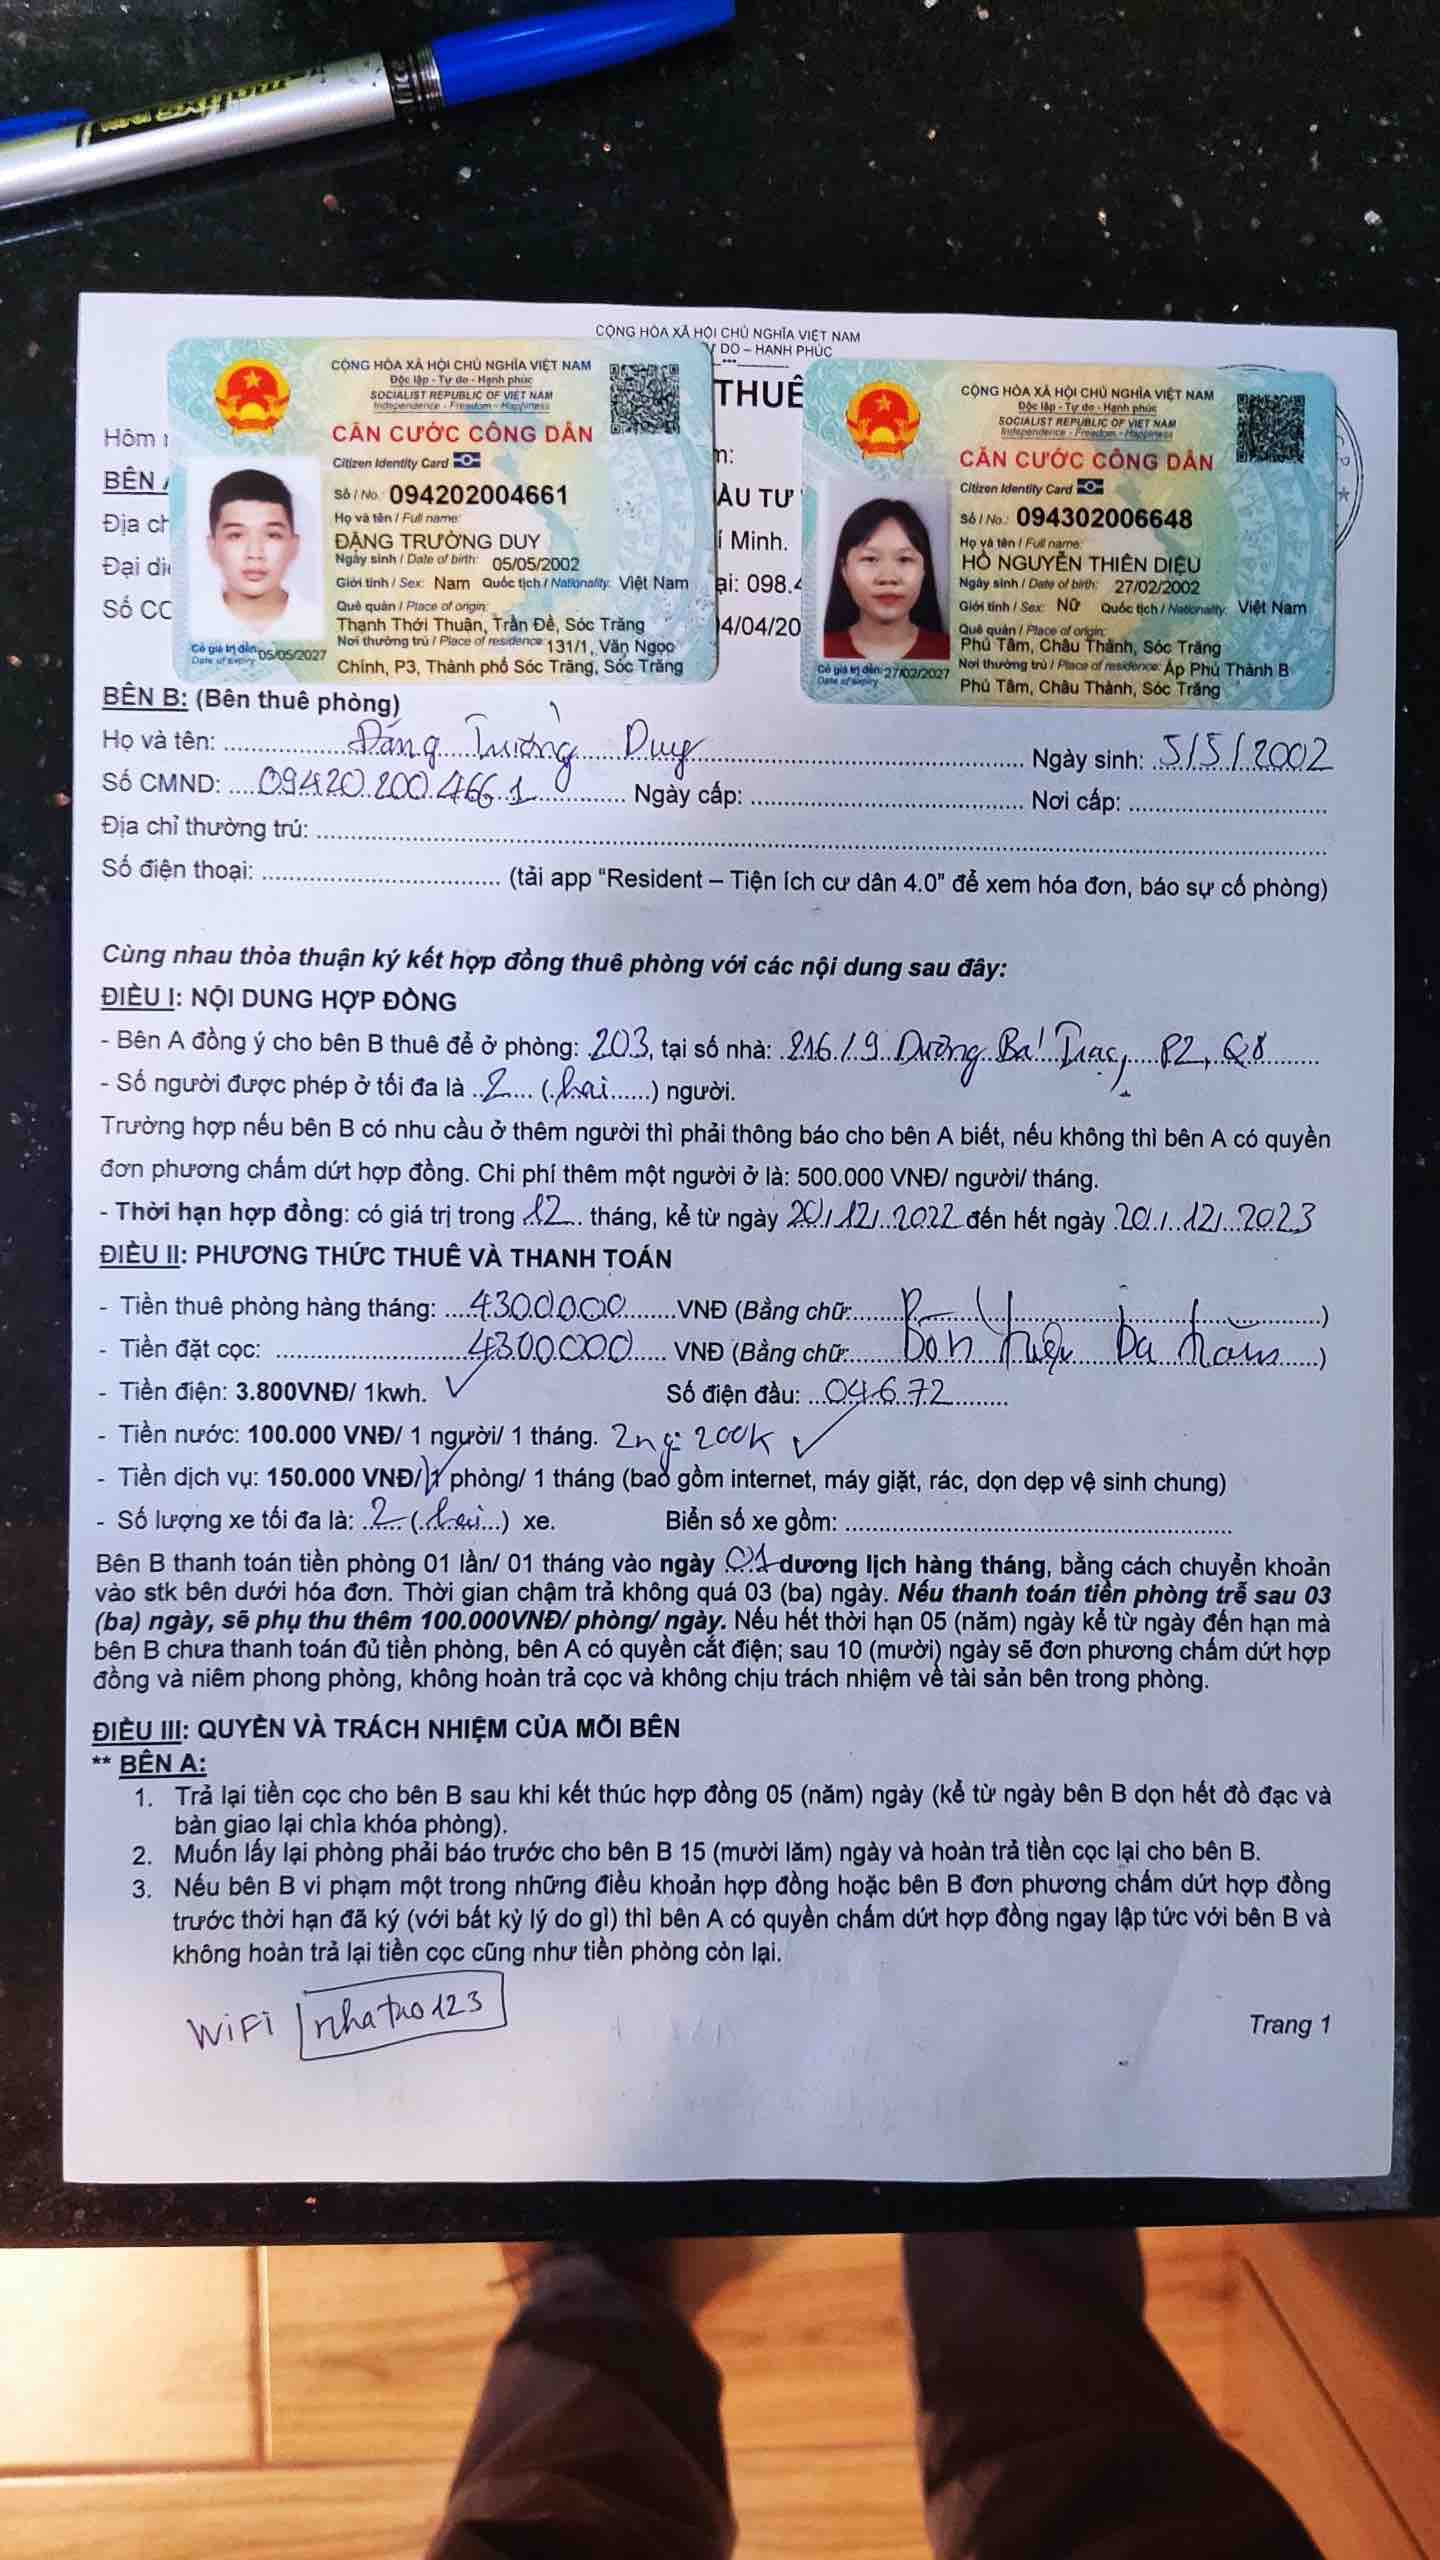 CỘNG HÒA XÃ HỘI CHỦ NGHĨA VIỆT NAM
DO – HẠNH PHÚC
CỘNG HÒA XÃ HỘI CHỦ NGHĨA VIỆT NAM
Độc lập - Tự do - Hạnh phúc
SOCIALIST REPUBLIC OF VIET NAM
Independence - Freedom - Happiness
CĂN CƯỚC CÔNG DÂN
Citizen Identity Card
Số / No.: 094202004661
Họ và tên / Full name:
ĐẶNG TRƯỜNG DUY
Ngày sinh / Date of birth: 05/05/2002
Giới tính / Sex: Nam Quốc tịch / Nationality: Việt Nam
Quê quán / Place of origin:
Thạnh Thới Thuận, Trần Đề, Sóc Trăng
Nơi thường trú / Place of residence: 131/1, Văn Ngọc
Chính, P3, Thành phố Sóc Trăng, Sóc Trăng
Có giá trị đến: 05/05/2027
Date of expiry
CỘNG HÒA XÃ HỘI CHỦ NGHĨA VIỆT NAM
Độc lập - Tự do - Hạnh phúc
SOCIALIST REPUBLIC OF VIET NAM
Independence - Freedom - Happiness
CĂN CƯỚC CÔNG DÂN
Citizen Identity Card
Số / No.: 094302006648
Họ và tên / Full name:
HỒ NGUYỄN THIÊN DIỆU
Ngày sinh / Date of birth: 27/02/2002
Giới tính / Sex: Nữ Quốc tịch / Nationality: Việt Nam
Quê quán / Place of origin:
Phú Tâm, Châu Thành, Sóc Trăng
Nơi thường trú / Place of residence: Ấp Phú Thành B
Phú Tâm, Châu Thành, Sóc Trăng
Có giá trị đến: 27/02/2027
Date of expiry
THUÊ
Hôm
BÊN
ẦU TƯ
Địa ch
í Minh.
Đại di
ại: 098.4
Số CC
04/04/20
BÊN B: (Bên thuê phòng)
Họ và tên: Đặng Trường Duy Ngày sinh: 5/5/2002
Số CMND: 094202004661 Ngày cấp: Nơi cấp:
Địa chỉ thường trú:
Số điện thoại: (tải app “Resident – Tiện ích cư dân 4.0” để xem hóa đơn, báo sự cố phòng)
Cùng nhau thỏa thuận ký kết hợp đồng thuê phòng với các nội dung sau đây:
ĐIỀU I: NỘI DUNG HỢP ĐỒNG
- Bên A đồng ý cho bên B thuê để ở phòng: 203, tại số nhà: 216/9 Dương Bá Trạc, P2, Q8
- Số người được phép ở tối đa là 2 (hai) người.
Trường hợp nếu bên B có nhu cầu ở thêm người thì phải thông báo cho bên A biết, nếu không thì bên A có quyền
đơn phương chấm dứt hợp đồng. Chi phí thêm một người ở là: 500.000 VNĐ/ người/ tháng.
- Thời hạn hợp đồng: có giá trị trong 12 tháng, kể từ ngày 20/12/2022 đến hết ngày 20/12/2023
ĐIỀU II: PHƯƠNG THỨC THUÊ VÀ THANH TOÁN
- Tiền thuê phòng hàng tháng: 4300000 VNĐ (Bằng chữ: )
- Tiền đặt cọc: 4300000 VNĐ (Bằng chữ: Bốn triệu ba trăm )
- Tiền điện: 3.800VNĐ/ 1kwh. ✓ Số điện đầu: 04672
- Tiền nước: 100.000 VNĐ/ 1 người/ 1 tháng. 2ng: 200K ✓
- Tiền dịch vụ: 150.000 VNĐ/ 1 phòng/ 1 tháng (bao gồm internet, máy giặt, rác, dọn dẹp vệ sinh chung)
- Số lượng xe tối đa là: 2 (hai) xe. Biển số xe gồm:
Bên B thanh toán tiền phòng 01 lần/ 01 tháng vào ngày 01 dương lịch hàng tháng, bằng cách chuyển khoản
vào stk bên dưới hóa đơn. Thời gian chậm trả không quá 03 (ba) ngày. Nếu thanh toán tiền phòng trễ sau 03
(ba) ngày, sẽ phụ thu thêm 100.000VNĐ/ phòng/ ngày. Nếu hết thời hạn 05 (năm) ngày kể từ ngày đến hạn mà
bên B chưa thanh toán đủ tiền phòng, bên A có quyền cắt điện; sau 10 (mười) ngày sẽ đơn phương chấm dứt hợp
đồng và niêm phong phòng, không hoàn trả cọc và không chịu trách nhiệm về tài sản bên trong phòng.
ĐIỀU III: QUYỀN VÀ TRÁCH NHIỆM CỦA MỖI BÊN
** BÊN A:
1. Trả lại tiền cọc cho bên B sau khi kết thúc hợp đồng 05 (năm) ngày (kể từ ngày bên B dọn hết đồ đạc và
bàn giao lại chìa khóa phòng).
2. Muốn lấy lại phòng phải báo trước cho bên B 15 (mười lăm) ngày và hoàn trả tiền cọc lại cho bên B.
3. Nếu bên B vi phạm một trong những điều khoản hợp đồng hoặc bên B đơn phương chấm dứt hợp đồng
trước thời hạn đã ký (với bất kỳ lý do gì) thì bên A có quyền chấm dứt hợp đồng ngay lập tức với bên B và
không hoàn trả lại tiền cọc cũng như tiền phòng còn lại.
WIFI nhatro123
Trang 1